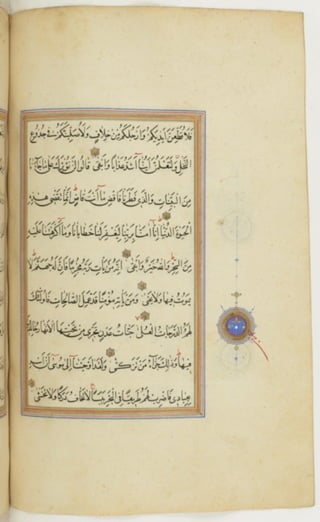 فَلَأُقَطِّعَنَّ أَيْدِيَكُمْ وَأَرْجُلَكُمْ مِنْ خِلَافٍ وَلَأُصَلِّبَنَّكُمْ فِي جُذُوعِ
النَّخْلِ وَلَتَعْلَمُنَّ أَيُّنَا أَشَدُّ عَذَابًا وَأَبْقَى قَالُوا لَنْ نُؤْثِرَكَ عَلَى مَا جَاءَنَا
مِنَ الْبَيِّنَاتِ وَالَّذِي فَطَرَنَا فَاقْضِ مَا أَنْتَ قَاضٍ إِنَّمَا تَقْضِي هَذِهِ
الْحَيٰوةَ الدُّنْيَا إِنَّا آمَنَّا بِرَبِّنَا لِيَغْفِرَ لَنَا خَطَايَانَا وَمَا أَكْرَهْتَنَا عَلَيْهِ
مِنَ السِّحْرِ وَاللَّهُ خَيْرٌ وَأَبْقَى إِنَّهُ مَنْ يَأْتِ رَبَّهُ مُجْرِمًا فَإِنَّ لَهُ جَهَنَّمَ لَا
يَمُوتُ فِيهَا وَلَا يَحْيَى وَمَنْ يَأْتِهِ مُؤْمِنًا قَدْ عَمِلَ الصَّالِحَاتِ فَأُولَئِكَ
لَهُمُ الدَّرَجَاتُ الْعُلَى جَنَّاتُ عَدْنٍ تَجْرِي مِنْ تَحْتِهَا الْأَنْهَارُ خَالِدِينَ
فِيهَا وَذَلِكَ جَزَاءُ مَنْ تَزَكَّى وَلَقَدْ أَوْحَيْنَا إِلَى مُوسَى أَنْ أَسْرِ
بِعِبَادِي فَاضْرِبْ لَهُمْ طَرِيقًا فِي الْبَحْرِ يَبَسًا لَا تَخَافُ دَرَكًا وَلَا تَخْشَى